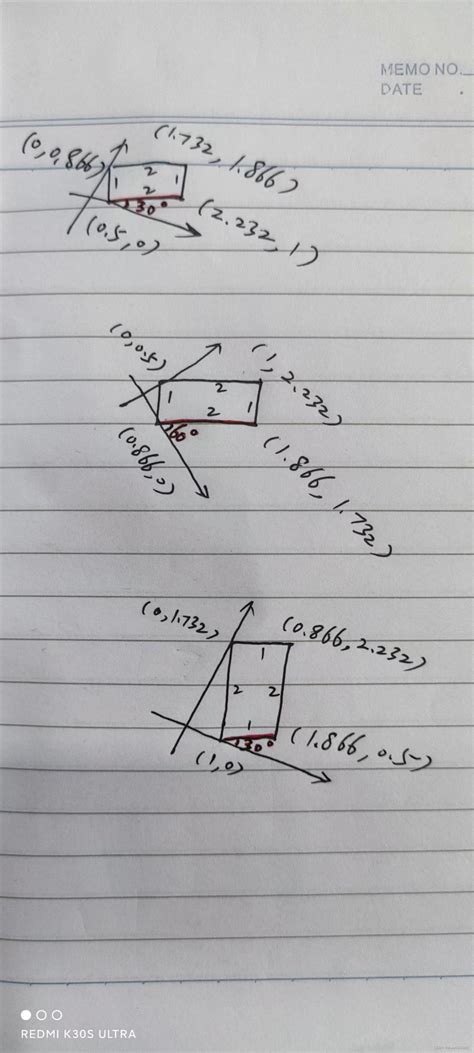 MEMO NO.
DATE .
(0, 0.866)
(1.732, 1.866)
2
1
1
2
30°
(0.5, 0)
(2.232, 1)
(0, 0.5)
(1, 2.232)
2
1
2
1
60°
(0.866, 0)
(1.866, 1.732)
(0, 1.732)
(0.866, 2.232)
1
2
2
1
30°
(1, 0)
(1.866, 0.5)
REDMI K30S ULTRA